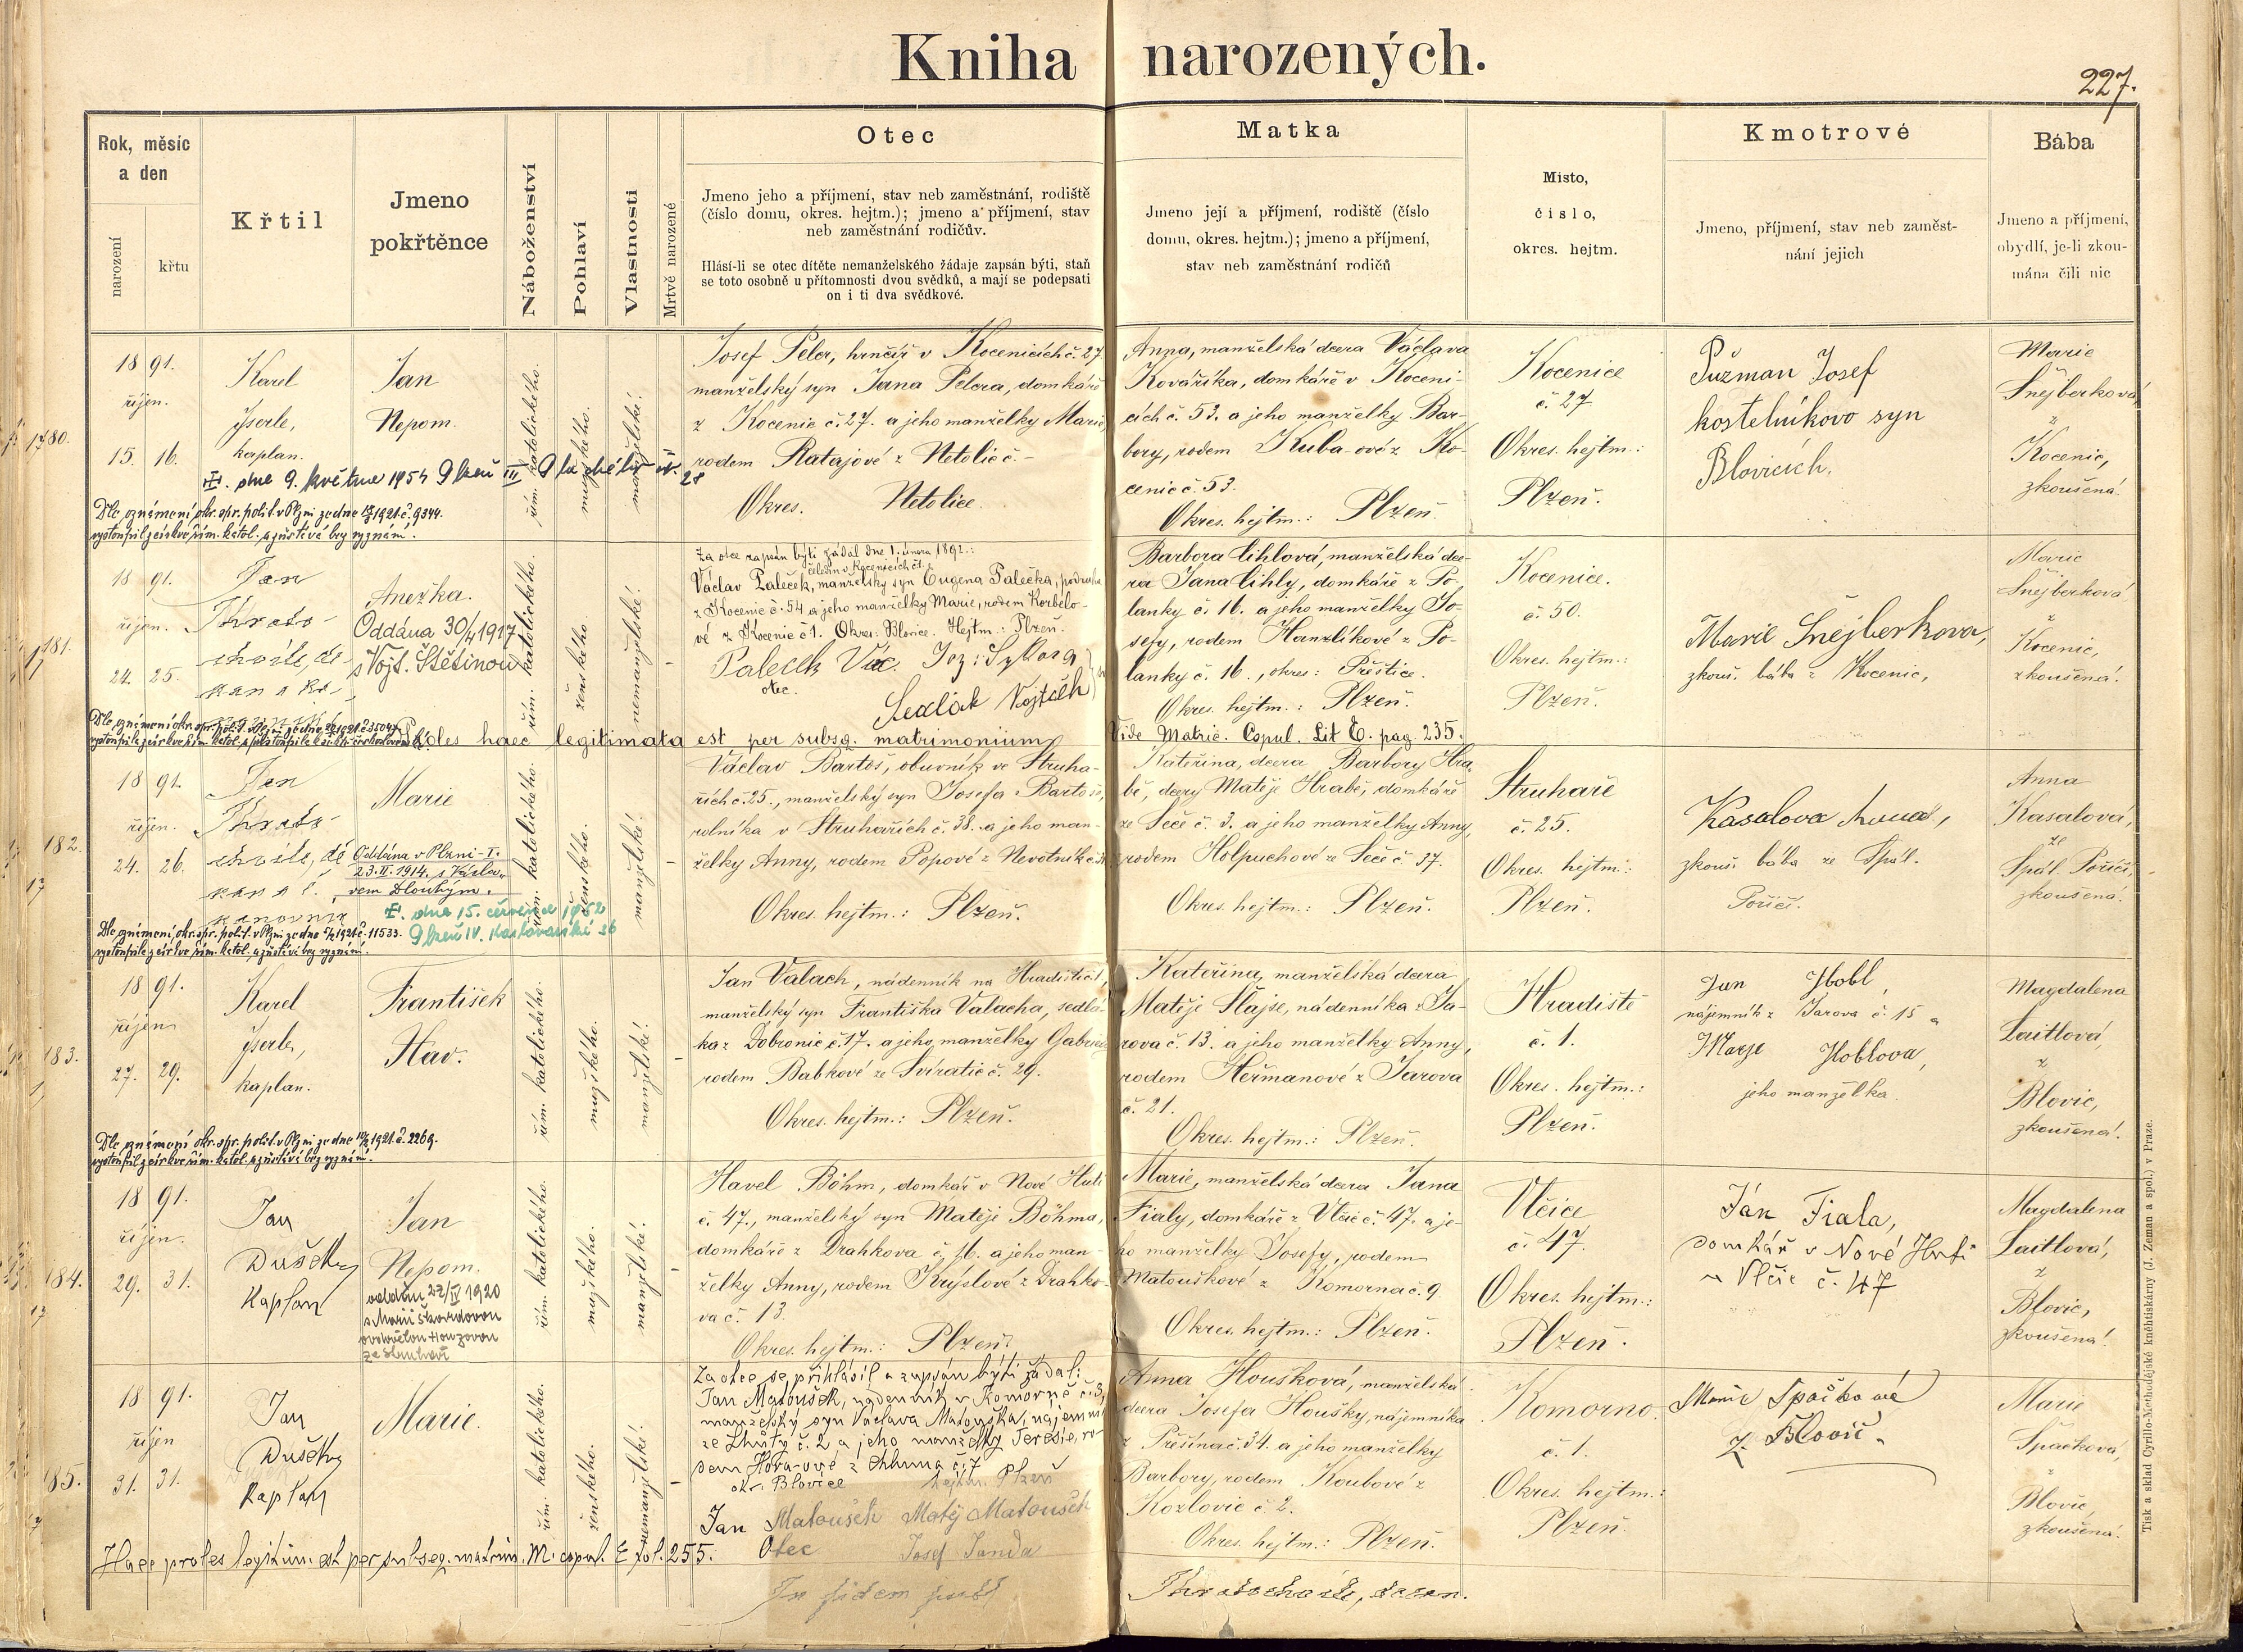 Kniha narozených.
227.
Rok, měsíc
a den
narození
křtu
Křtil
Jmeno
pokřtěnce
Náboženství
Pohlaví
Vlastnosti
Mrtvě narozené
Otec
Jmeno jeho a příjmení, stav neb zaměstnání, rodiště
(číslo domu, okres. hejtm.); jmeno a příjmení, stav
neb zaměstnání rodičův.
Hlásí-li se otec dítěte nemanželského žádaje zapsán býti, staň
se toto osobně u přítomnosti dvou svědků, a mají se podepsati
on i ti dva svědkové.
Matka
Jmeno její a příjmení, rodiště (číslo
domu, okres. hejtm.); jmeno a příjmení,
stav neb zaměstnání rodičů
Místo,
číslo,
okres. hejtm.
Kmotrové
Jméno, příjmení, stav neb zaměst-
nání jejich
Bába
Jmeno a příjmení,
obydlí, je-li zkou-
mána čili nic
180.
18 91.
říjen.
15. 16.
Karel
Jserle,
kaplan.
Jan
Nepom.
řím. katolického.
mužského.
manželské.
Josef Peler, hrnčíř v Kocenicích č. 27.
manželský syn Jana Pelera, domkáře
z Kocenic č. 27. a jeho manželky Marie,
rodem Ratajové z Netolic č. -
Okres. Netolice.
Anna, manželská dcera Václava
Kovaříka, domkáře v Koceni-
cích č. 53. a jeho manželky Bar-
bory, rodem Kuba-ové z Ko-
cenic č. 53.
Okres. hejtm.: Plzeň.
Kocenice
č. 27
Okres. hejtm.:
Plzeň.
Pužman Josef
kostelníkovo syn
Blovicích.
Marie
Šnejberková
z
Kocenic,
zkoušená.
dne 9. května 1954 Plzeň III
28
Dle oznámení okr. spr. polit. v Plzni ze dne 1921 č. 9344.
vystoupil z církve řím. katol. a zůstává bez vyznání.
181.
18 91.
říjen.
24. 25.
Jan
Anežka.
Oddána 30/4 1917
s Vojt. Štětinou
řím. katolického.
ženského.
nemanželské.
-
Za otce zapsán býti žádal dne 1. února 1892.:
čeledín v Kocenicích č. 1.
Václav Paleček, manželský syn Eugena Palečka, podruha
z Kocenic č. 54 a jeho manželky Marie, rodem Korbelo-
vé z Kocenic č. 1. Okres: Blovice. Hejtm.: Plzeň.
Paleček Vác. Joz: Sykora
otec.
Sedlák Vojtěch
Barbora Cihlová, manželská dce-
ra Jana Cihly, domkáře z Po-
lanky č. 16. a jeho manželky Jo-
sefy, rodem Hanzlíkové z Po-
lanky č. 16., okres: Přeštice.
Okres. hejtm.: Plzeň.
Kocenice.
č. 50.
Okres. hejtm.:
Plzeň.
Marie Šnejberkova,
zkouš. bába z Kocenic,
Marie
Šnejberková
z
Kocenic,
zkoušená.
Proles haec legitimata est per subsq. matrimonium
Vide Matric. Copul. Lit E. pag. 235.
182.
18 91.
říjen.
24. 26.
Jan
Marie
Oddána v Plzni-I.
23.II.1914. s Václa-
vem Dlouhým.
dne 15. července 1952
Plzeň IV.
řím. katolického.
ženského.
manželské.
-
Václav Bartoš, obuvník ve Struha-
řích č. 25., manželský syn Josefa Bartoše,
rolníka v Struhařích č. 38. a jeho man-
želky Anny, rodem Popové z Nevotník č.
Okres. hejtm.: Plzeň.
Kateřina, dcera Barbory Hra-
bě, dcery Matěje Hrabě, domkáře
ze Seče č. 3. a jeho manželky Anny,
rodem Holpuchové ze Seče č. 37.
Okres. hejtm.: Plzeň.
Struhaře
č. 25.
Okres. hejtm.:
Plzeň.
Kasalova Anna,
zkouš. bába ze Spál.
Poříčí.
Anna
Kasalová,
ze
Spál. Poříčí,
zkoušená.
Dle oznámení okr. spr. polit. v Plzni ze dne 1921 č. 11533.
vystoupila z církve řím. katol. a zůstává bez vyznání.
183.
18 91.
říjen
27. 29.
Karel
Jserle,
kaplan.
František
Hav.
řím. katolického.
mužského.
manželské.
-
Jan Valach, nádenník na Hradišti č. 1,
manželský syn Františka Valacha, sedlá-
ka z Dobronic č. 17. a jeho manželky Gabriely
rodem Babkové ze Svíratic č. 29.
Okres. hejtm.: Plzeň.
Kateřina, manželská dcera
Matěje Šlajse, nádenníka z Ja-
rova č. 13. a jeho manželky Anny,
rodem Heřmanové z Jarova
č. 21.
Okres. hejtm.: Plzeň.
Hradiště
č. 1.
Okres. hejtm.:
Plzeň.
Jan Hobl,
nájemník z Jarova č. 15 a
Marje Hoblova,
jeho manželka.
Magdalena
Laitlová,
z
Blovic,
zkoušená.
Dle oznámení okr. spr. polit. v Plzni ze dne 1921 č. 2269.
vystoupil z církve řím. katol. a zůstává bez vyznání.
184.
18 91.
říjen.
29. 31.
Jan
Dušek
Kaplan
Jan
Nepom.
oddán 27/IV 1920
s Marií Škardovou
řím. katolického.
mužského.
manželské.
-
Havel Böhm, domkář v Nové Huti
č. 47., manželský syn Matěje Böhma,
domkáře z Drahkova č. 16. a jeho man-
želky Anny, rodem Krýslové z Drahko-
va č. 13.
Okres. hejtm.: Plzeň.
Marie, manželská dcera Jana
Fialy, domkáře z Vlčic č. 47. a je-
ho manželky Josefy, rodem
Matouškové z Komorna č. 9
Okres. hejtm.: Plzeň.
Vlčice
č. 47.
Okres. hejtm.:
Plzeň.
Ján Fiala,
domkář v Nové Huti
u Vlčic č. 47
Magdalena
Laitlová,
z
Blovic,
zkoušená!
185.
18 91.
říjen
31. 31.
Jan
Dušek
Kaplan
Marie.
řím. katolického.
ženského.
nemanželské.
-
Za otce se přihlásil a zapsán býti žádal:
Jan Matoušek, nádenník v Komorně č. 3,
manželský syn Václava Matouška, nájemníka
ze Lhůty č. 2 a jeho manželky Teresie, ro-
dem Hora-ové z Chluma č. 7
okr. Blovice hejtm. Plzeň
Jan Matoušek Matěj Matoušek
Otec Josef Janda
Anna Houšková, manželská
dcera Josefa Houšky, nájemníka
z Přešína č. 34. a jeho manželky
Barbory, rodem Koubové z
Kozlovic č. 2.
Okres. hejtm.: Plzeň.
Komorno.
č. 1.
Okres. hejtm.:
Plzeň.
Marie Spačková
z Blovic.
Marie
Spačková,
z
Blovic,
zkoušená.
Haec proles legitim. est per subseq. matrim. M. copul. E fol. 255.
In fidem
Tisk a sklad Cyrillo-Methodějské kněhtiskárny (J. Zeman a spol.) v Praze.